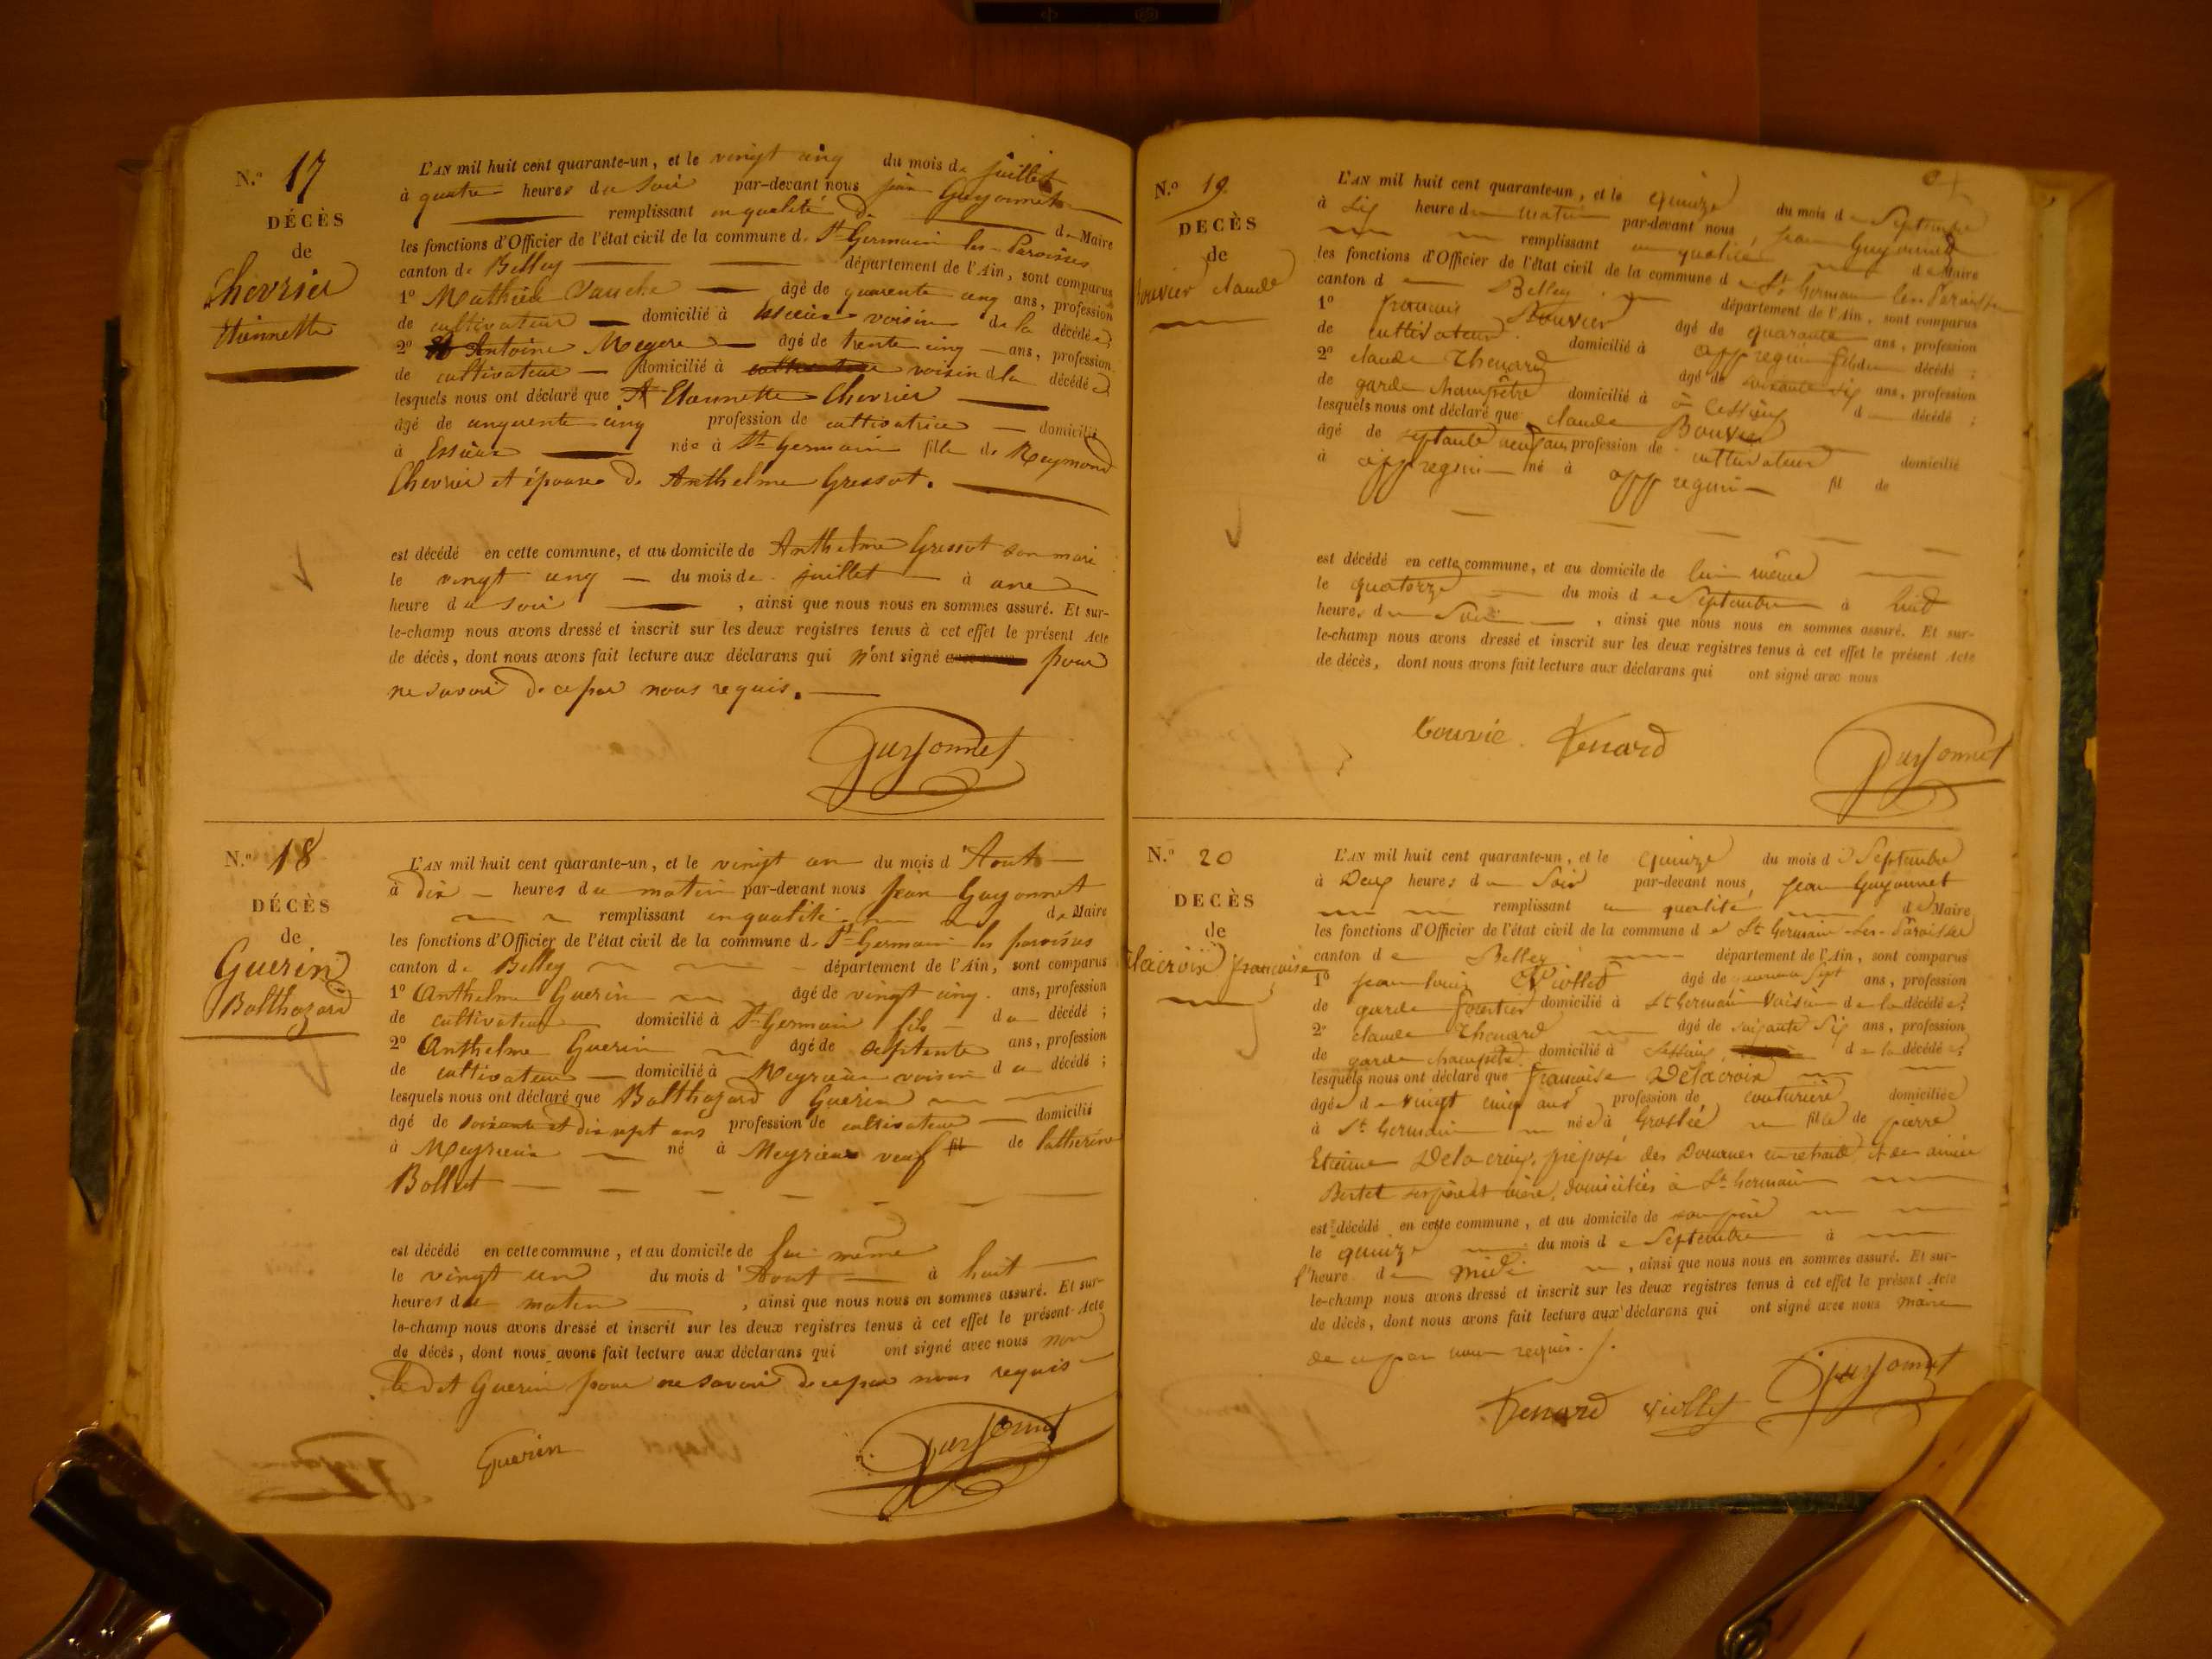 N.º 17
DÉCÈS
de
Chevrier
Etiennette
L'AN mil huit cent quarante-un, et le vingt cinq du mois de juillet
à quatre heures du soir par-devant nous jean Guyonnet
remplissant en qualité de Maire
les fonctions d'Officier de l'état civil de la commune d. St Germain les Paroisses
canton de Belley département de l'Ain, sont comparus
1º Mathieu âgé de quarente cinq ans, profession
de cultivateur domicilié à Essieux voisin de la décédée;
2º Antoine Megere âgé de trente cinq ans, profession
de cultivateur domicilié à voisin de la décédée
lesquels nous ont déclaré que Etiennette Chevrier
âgé de cinquente cinq profession de cultivatrice domicilié
à Essieux née à St Germain fille de Reymond
Chevrier et épouse de Anthelme Gressot.
est décédé en cette commune, et au domicile de Anthelme Gressot son mari
le vingt cinq du mois de juillet à une
heure du soir, ainsi que nous nous en sommes assuré. Et sur-
le-champ nous avons dressé et inscrit sur les deux registres tenus à cet effet le présent Acte
de décès, dont nous avons fait lecture aux déclarans qui n'ont signé pour
ne savoir de ce par nous requis.
Guyonnet
N.º 18
DÉCÈS
de
Guerin
Balthazard
L'AN mil huit cent quarante-un, et le vingt un du mois d'Aout
à dix heures du matin par-devant nous Jean Guyonnet
remplissant en qualité de Maire
les fonctions d'Officier de l'état civil de la commune d. St Germain les paroisses
canton d. Belley département de l'Ain, sont comparus
1º Anthelme Guerin âgé de vingt cinq. ans, profession
de cultivateur domicilié à St Germain fils du décédé;
2º Anthelme Guerin âgé de septente ans, profession
de cultivateur domicilié à Meyrieux voisin du décédé;
lesquels nous ont déclaré que Balthazard Guerin
âgé de soixante et dix sept ans profession de cultivateur domicilié
à Meyrieux né à Meyrieux veuf fil de Catherine
Bollet
est décédé en cette commune, et au domicile de lui même
le vingt un du mois d'Aout à huit
heures du matin, ainsi que nous nous en sommes assuré. Et sur-
le-champ nous avons dressé et inscrit sur les deux registres tenus à cet effet le présent Acte
de décès, dont nous avons fait lecture aux déclarans qui ont signé avec nous non
le dit Guerin pour ne savoir de ce par nous requis
Guerin Guyonnet
N.º 19
DÉCÈS
de
Bouvier claude
L'AN mil huit cent quarante-un, et le quinze du mois de Septembre
à six heure du matin par-devant nous, jean Guyonnet
remplissant en qualité de Maire
les fonctions d'Officier de l'état civil de la commune de St Germain les Paroisses
canton de Belley département de l'Ain, sont comparus
1º francois Bouvier âgé de quarante ans, profession
de cultivateur domicilié à appregnin fils du décédé;
2º claude Thenard âgé de soixante six ans, profession
de garde champêtre domicilié à à Cessieux d décédé;
lesquels nous ont déclaré que claude Bouvier
âgé de septante neuf ans profession de cultivateur domicilié
à appregnin né à appregnin fil de
est décédé en cette commune, et au domicile de lui même
le quatorze du mois de Septembre à huit
heures du Soir, ainsi que nous nous en sommes assuré. Et sur-
le-champ nous avons dressé et inscrit sur les deux registres tenus à cet effet le présent Acte
de décès, dont nous avons fait lecture aux déclarans qui ont signé avec nous
bouvie. Tenard Guyonnet
N.º 20
DÉCÈS
de
Delacroix françoise
L'AN mil huit cent quarante-un, et le quinze du mois de Septembre
à Deux heures du Soir par-devant nous, jean Guyonnet
remplissant en qualité de Maire
les fonctions d'Officier de l'état civil de la commune de St Germain-Les-Paroisses
canton de Belley département de l'Ain, sont comparus
1º jean louis Viollet âgé de quarante Sept ans, profession
de garde forestier domicilié à St Germain Voisin de la décédée;
2º claude Thenard âgé de soixante six ans, profession
de garde champêtre domicilié à Cessieux de la décédée;
lesquels nous ont déclaré que françoise Delacroix
âgée de vingt cinq ans profession de couturière domiciliée
à St Germain née à Groslée fille de pierre
Etienne Delacroix, préposé des Douanes en retraite et de aimée
Bertet ses père et mère, domiciliés à St Germain
est décédé en cette commune, et au domicile de son père
le quinze du mois de Septembre à
l'heure de midi, ainsi que nous nous en sommes assuré. Et sur-
le-champ nous avons dressé et inscrit sur les deux registres tenus à cet effet le présent Acte
de décès, dont nous avons fait lecture aux déclarans qui ont signé avec nous maire
de ce par nous requis.
Tenard Viollet Guyonnet